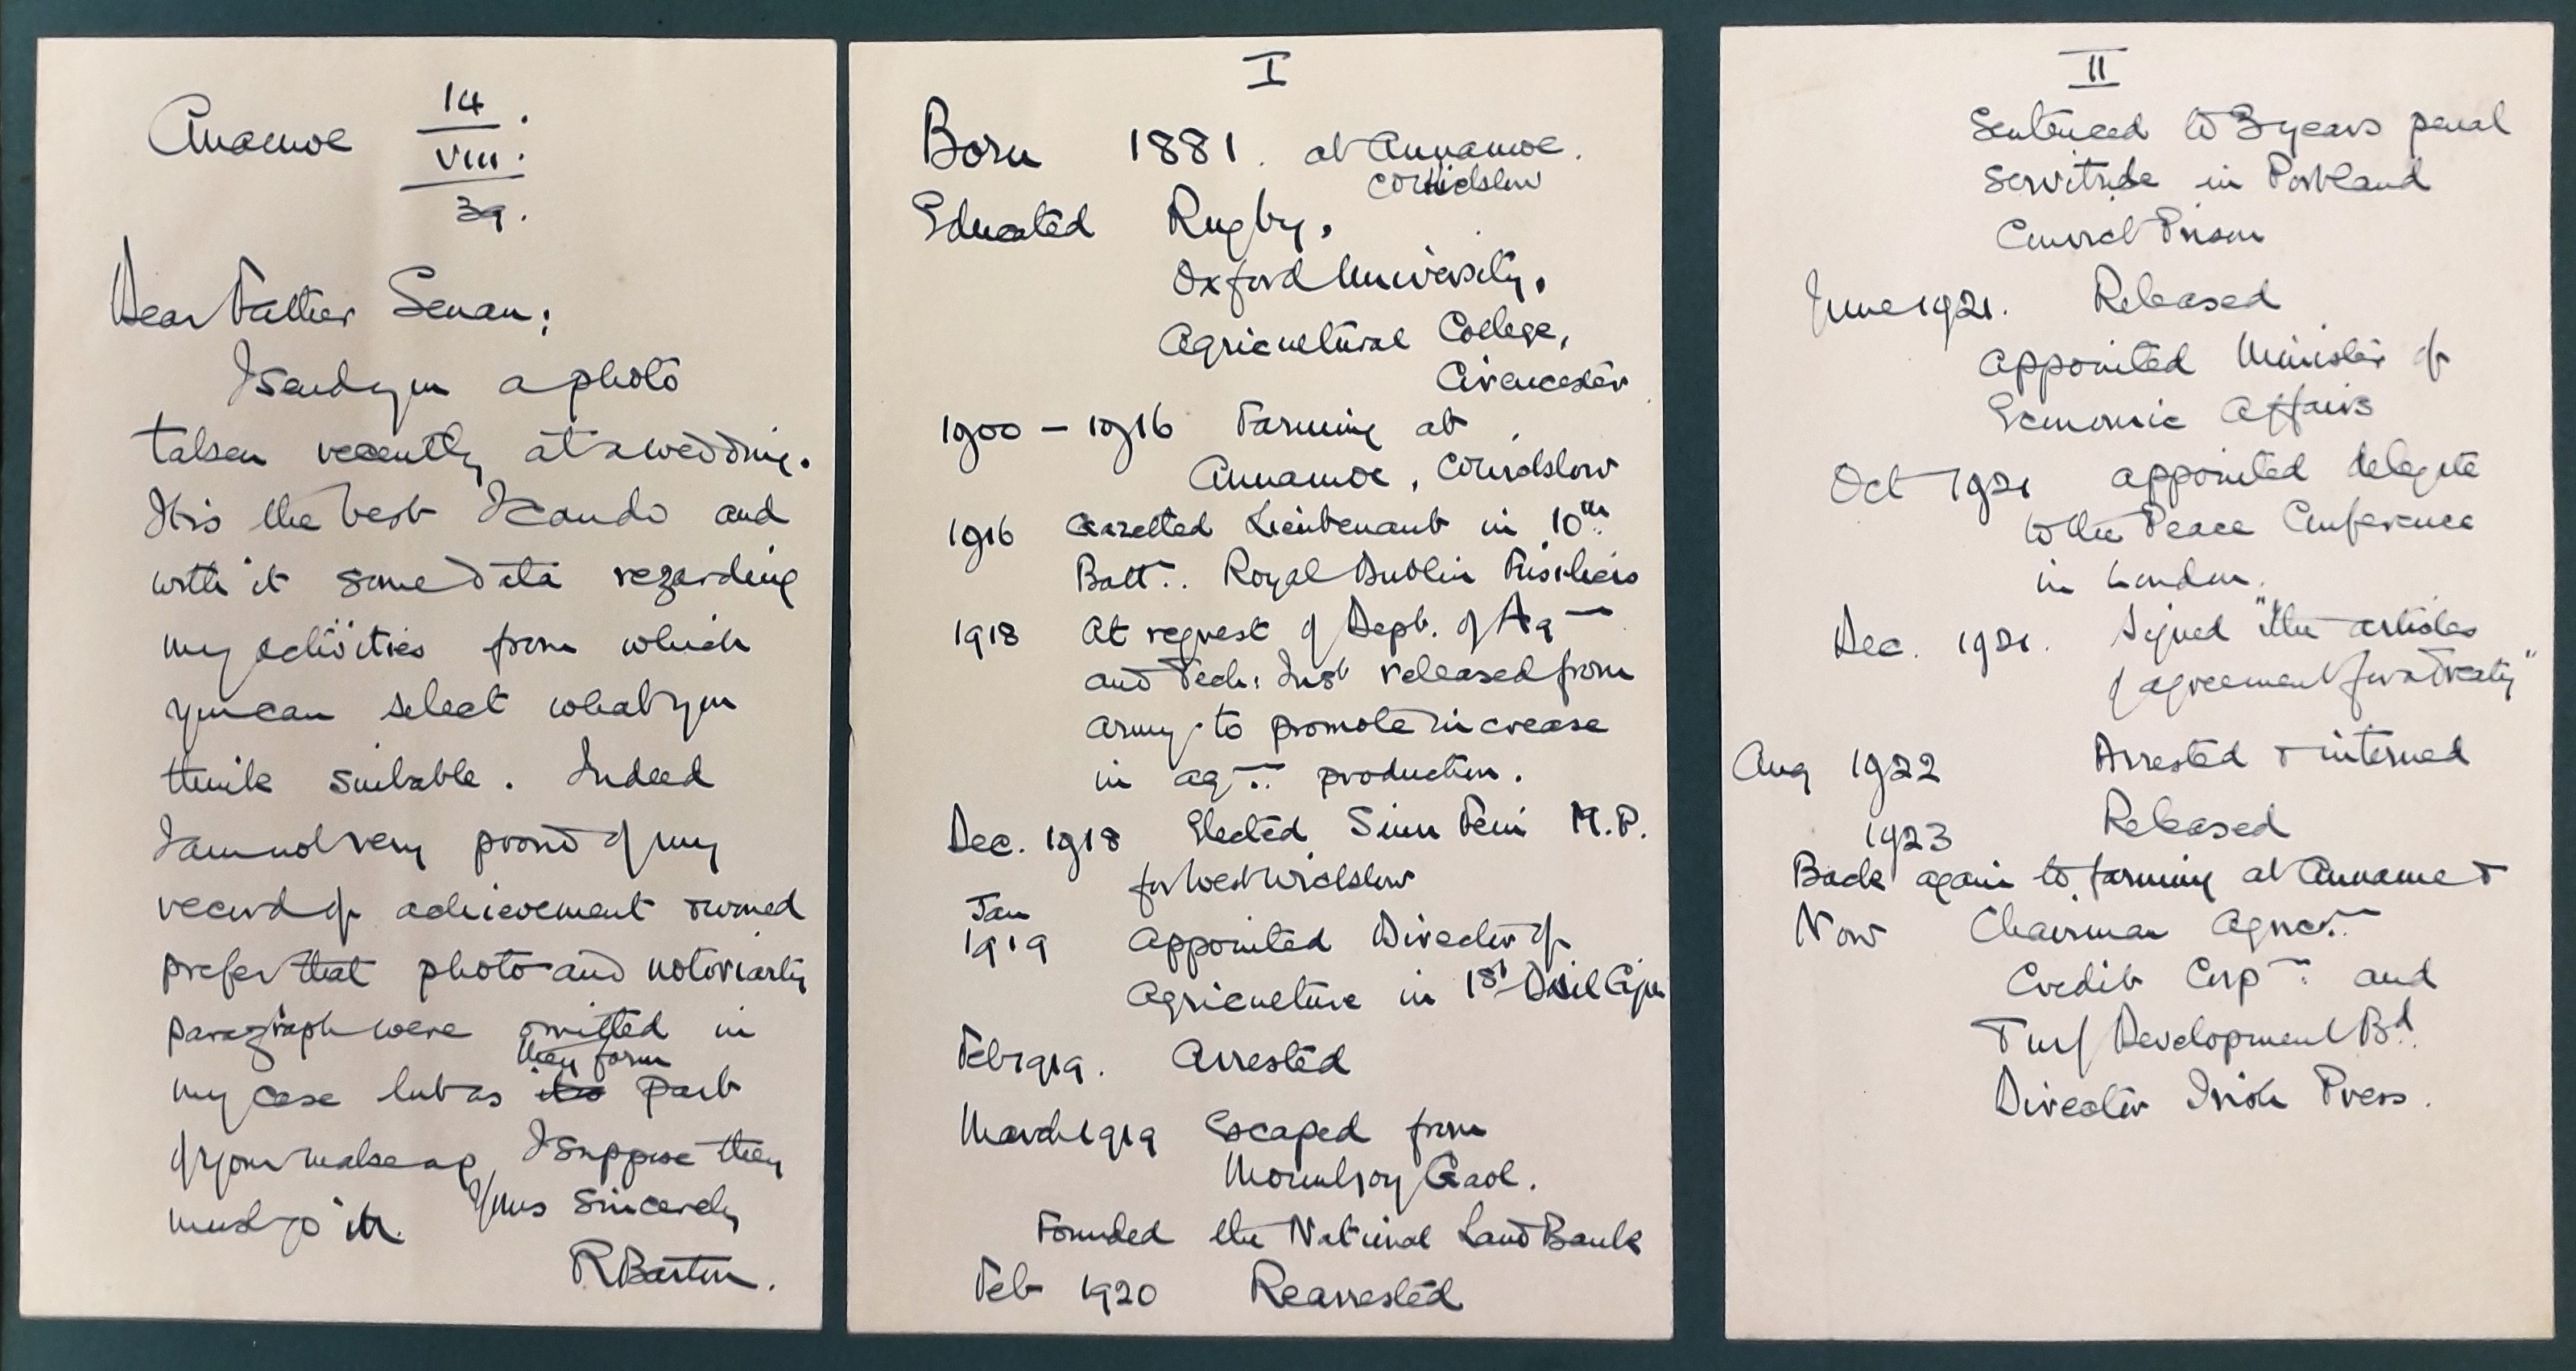 Anamoe 14
VIII
39.
Dear Father Senan;
I send you a photo
taken recently at a wedding.
It is the best I can do and
with it some data regarding
my activities from which
you can select what you
think suitable. Indeed
I am not very proud of my
record of achievement & would
prefer that photo and notoriarty
paragraph were omitted in
they form
my case but as its part
of your make up I suppose they
must go in. Yours sincerely
R Barton.
I
Born 1881. at Annamoe.
Co Wicklow
Educated Rugby,
Oxford University,
Agricultural College,
Cirencester
1900 - 1916 Farming at
Annamoe, Co Wicklow
1916 Gazetted Lieutenant in 10th
Batt. Royal Dublin Fusiliers
1918 At request of Dept. of Ag
and Tech. Inst released from
army to promote increase
in ag. production.
Dec. 1918 Elected Sinn Fein M.P.
for West Wicklow
Jan
1919 Appointed Director of
Agriculture in 1st Dail Eireann
Feb 1919. Arrested
March 1919 Escaped from
Mountjoy Gaol.
Founded the National Land Bank
Feb 1920 Rearrested
II
Sentenced to 3 years penal
servitude in Portland
Convict Prison
June 1921. Released
Appointed Minister of
Economic Affairs
Oct 1921 appointed delegate
to the Peace Conference
in London.
Dec. 1921. Signed "the articles
of agreement for a Treaty"
Aug 1922 Arrested & interned
1923 Released
Back again to farming at Annamoe &
Now Chairman Agric.
Credit Corp. and
Turf Development Bd.
Director Irish Press.